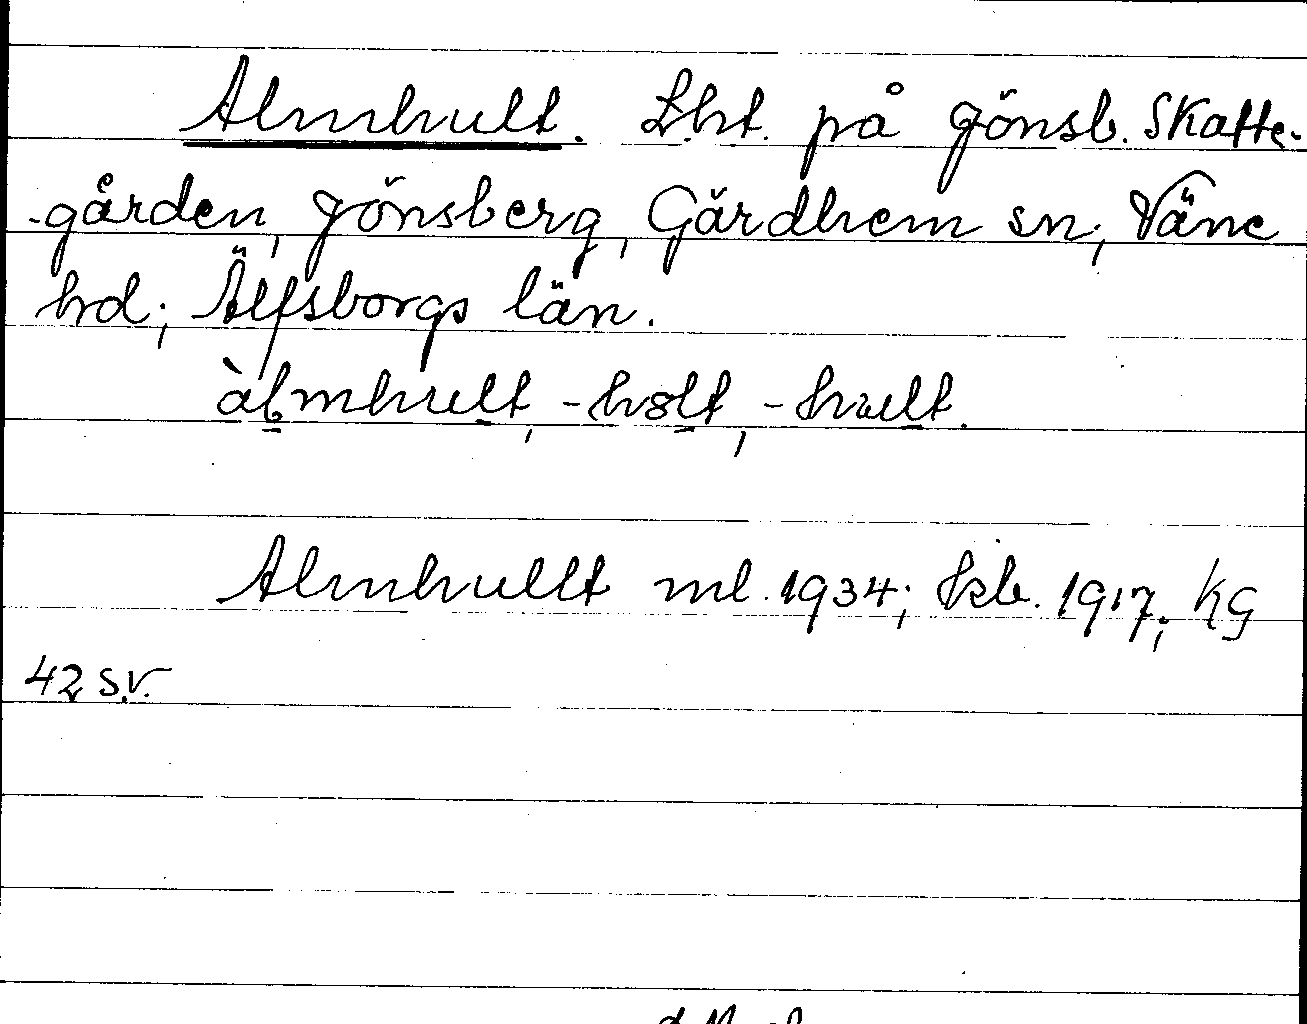 Almhult. Lht. på Jönsb. Skatte-
-gården, Jönsberg, Gärdhem sn, Väne
hd; Älfsborgs län.
àlmhult, -hølt, -hult.
Almhullt ml. 1934; kb. 1917; KG
42 S.V.